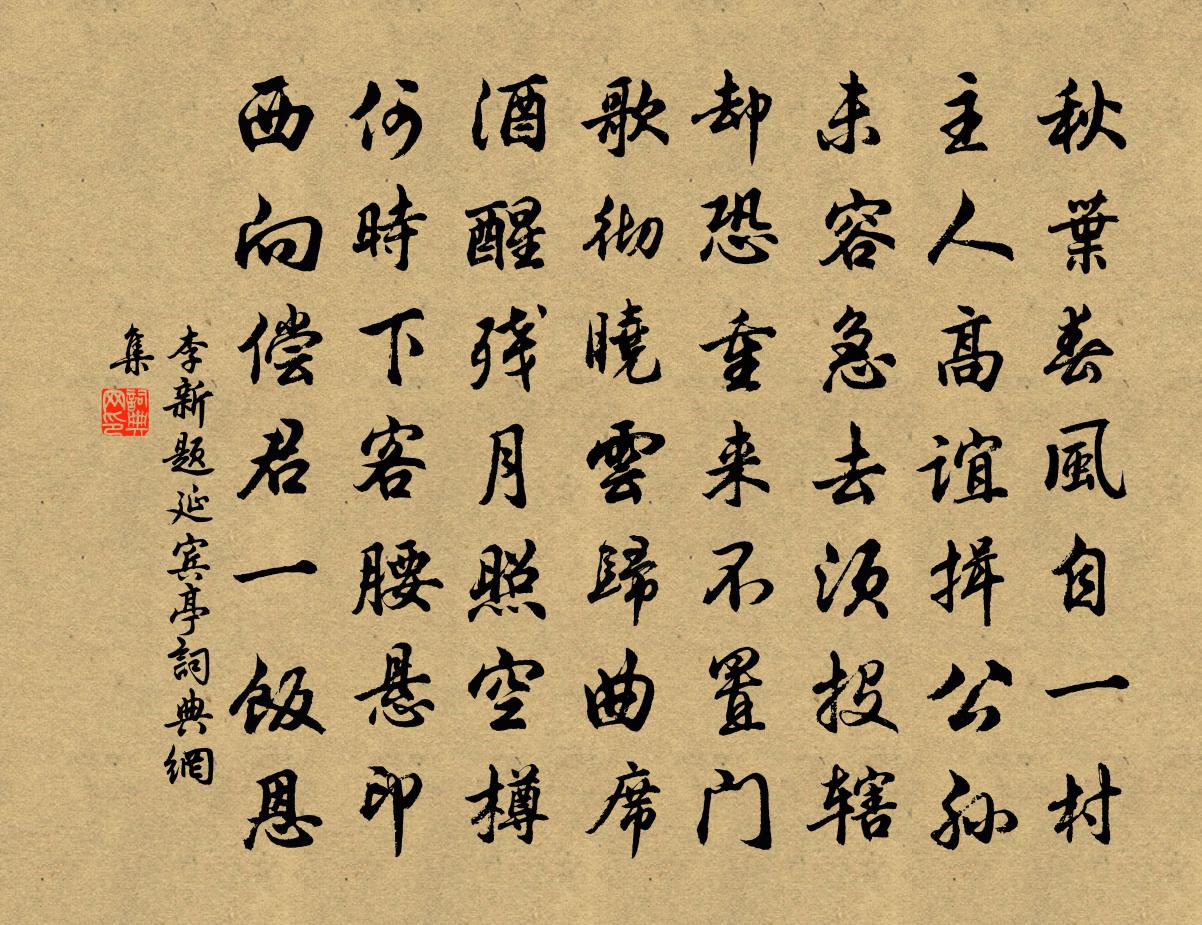 秋葉春風自一村
主人高誼揖公孙
未容急去须投辖
却恐重来不置门
歌彻曉雲歸曲席
酒醒残月照空樽
何時下客腰悬印
西向偿君一饭恩
李新题延宾亭詞典網
集
詞典网印